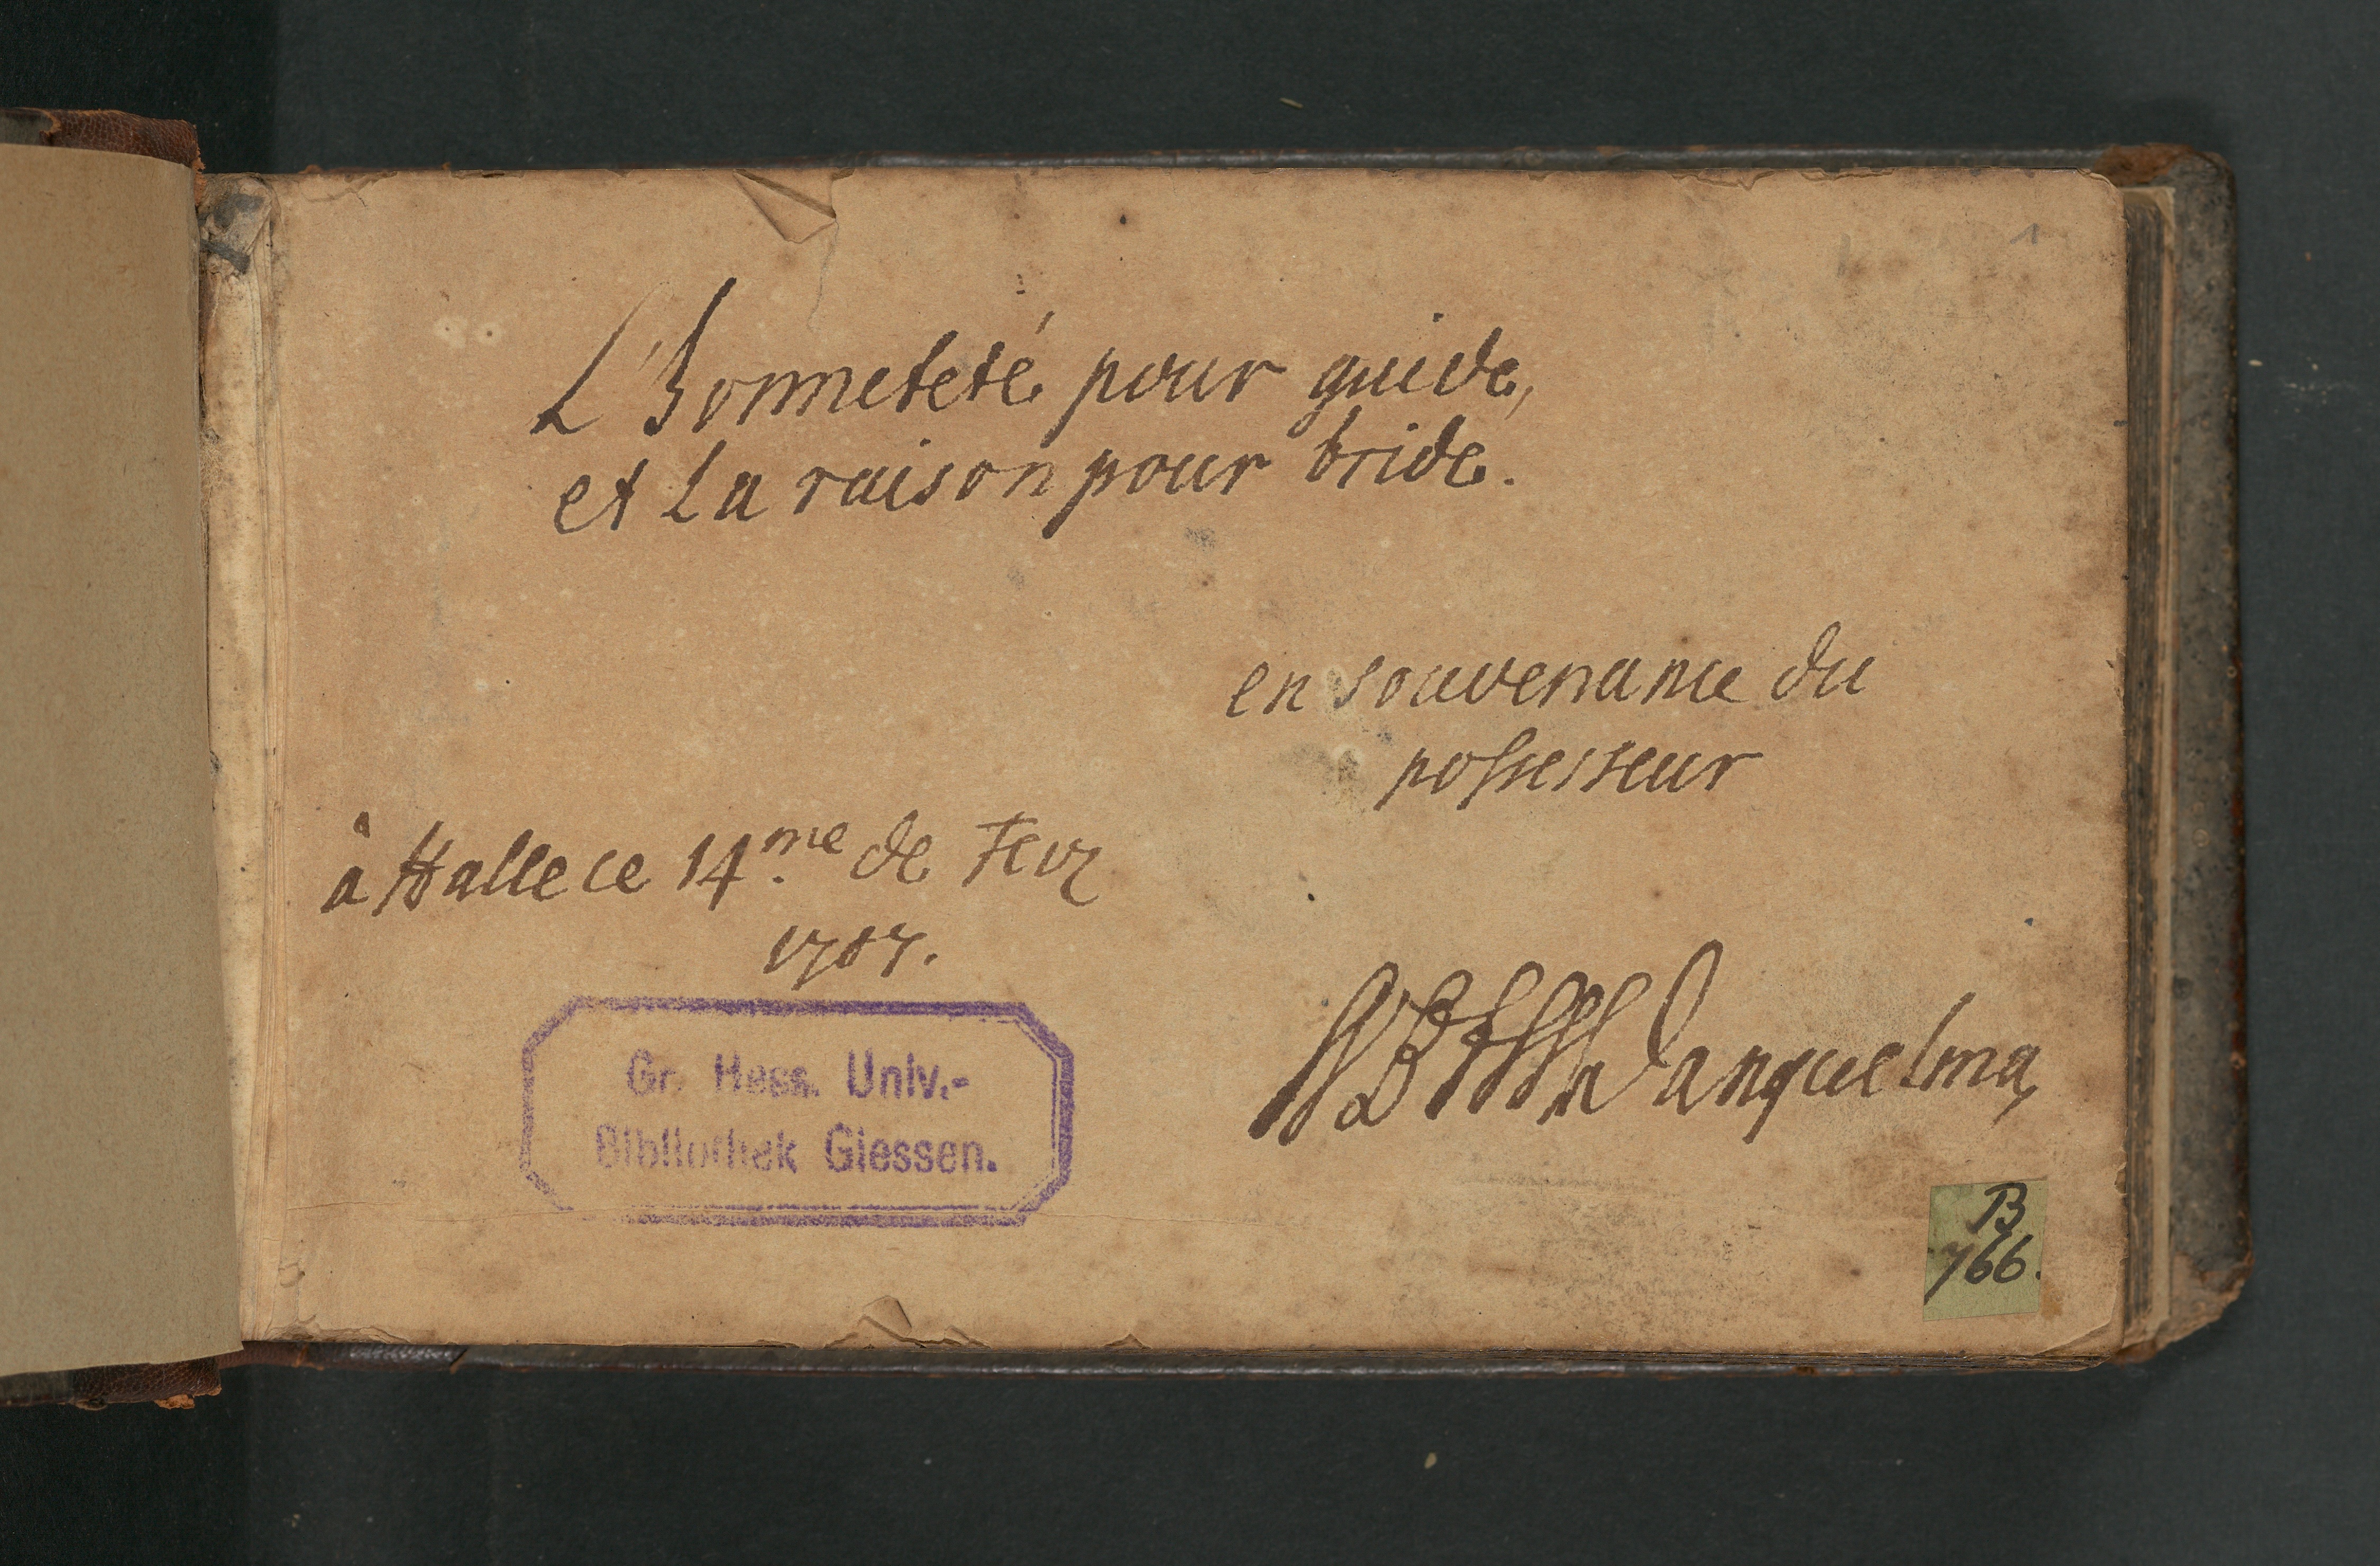 1
L'honneteté pour guide,
et La raison pour bride.
en souvenance du
possesseur
à Halle ce 14.me de Fevr
1707.
Danquelma
Gr. Hess. Univ.-
Bibliothek Giessen.
B
766.